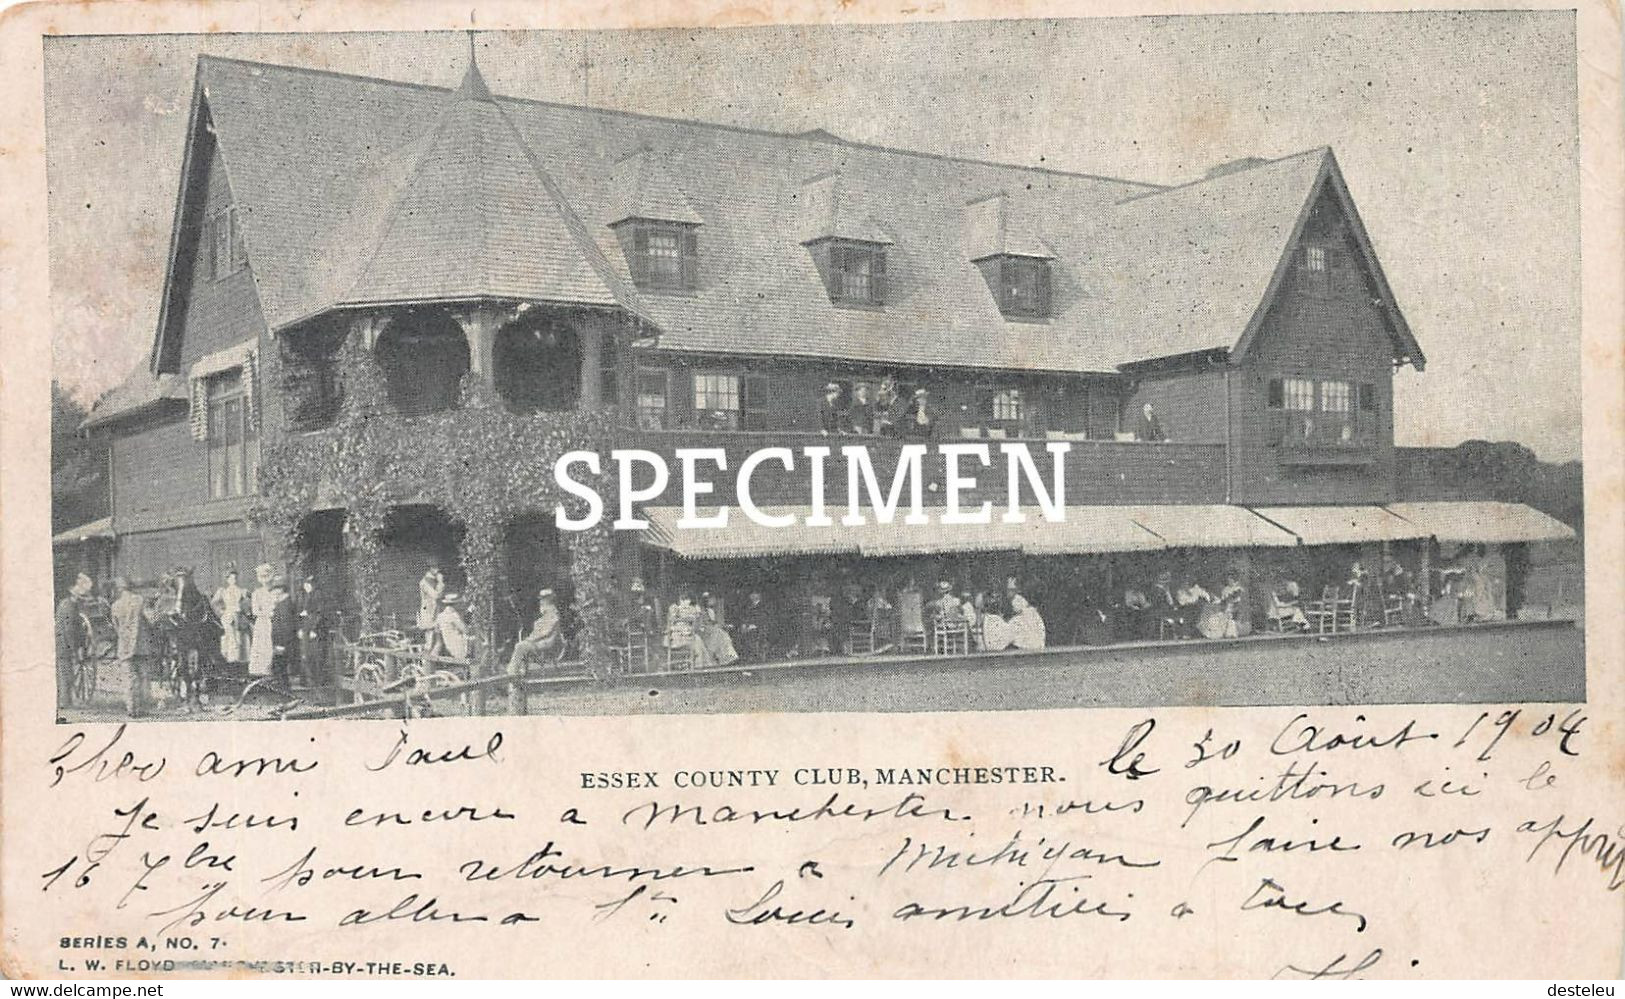 SPECIMEN
Cher ami Paul
le 30 Août 1904
ESSEX COUNTY CLUB, MANCHESTER.
Je suis encore a Manchester. nous quittons ici le
16 7bre pour retourner a Michigan faire nos apprêts
pour aller a St. Louis amitiés a tous
SERIES A, NO. 7.
L. W. FLOYD MANCHESTER-BY-THE-SEA.
Copyright © delcampe.net
desteleu